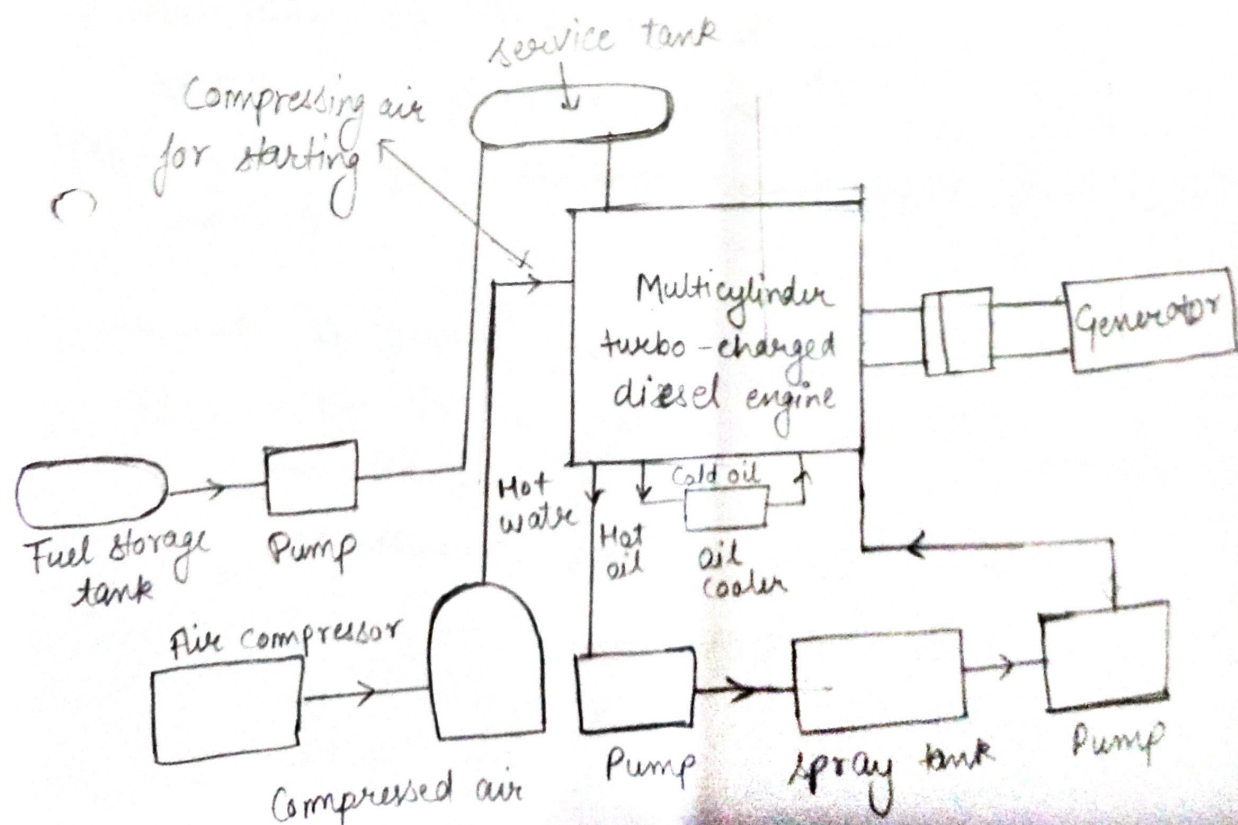 service tank
Compressing air
for starting
Multicylinder
turbo-charged
diesel engine
Generator
Fuel storage
tank
Pump
Hot
water
Hot
oil
Cold oil
oil
cooler
Air compressor
Compressed air
Pump
spray tank
Pump